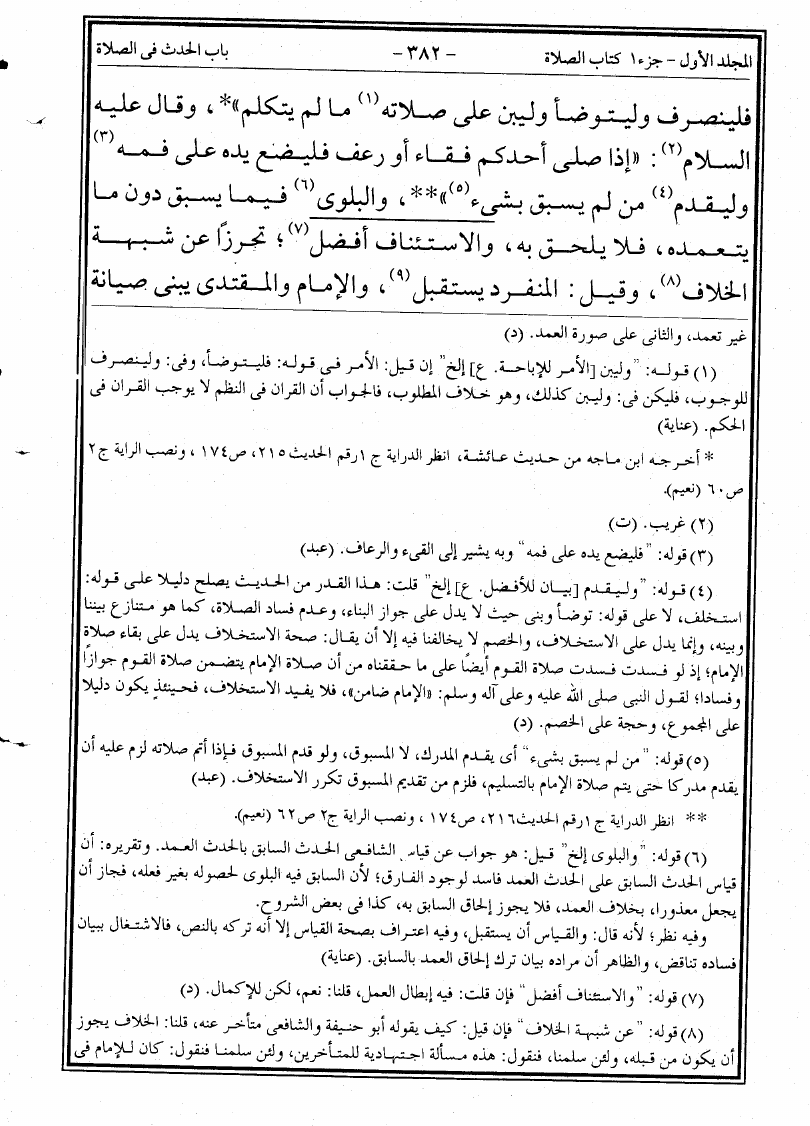 المجلد الأول - جزء ١ كتاب الصلاة - ٣٨٢ - باب الحدث فى الصلاة
فلينصرف وليتوضأ وليبن على صلاته(١) ما لم يتكلم»*، وقال عليه
السلام(٢): «إذا صلى أحدكم فقاء أو رعف فليضع يده على فمه(٣)
وليقدم(٤) من لم يسبق بشىء(٥)»**، والبلوى(٦) فيما يسبق دون ما
يتعمده، فلا يلحق به، والاستئناف أفضل(٧)؛ تحرزًا عن شبهة
الخلاف(٨)، وقيل: المنفرد يستقبل(٩)، والإمام والمقتدى يبنى صيانة
غير تعمد، والثانى على صورة العمد. (د)
(١) قوله: "وليبن [الأمر للإباحة. ع] إلخ" إن قيل: الأمر فى قوله: فليتوضأ، وفى: ولينصرف
للوجوب، فليكن فى: وليبن كذلك، وهو خلاف المطلوب، فالجواب أن القران فى النظم لا يوجب القران فى
الحكم. (عناية)
* أخرجه ابن ماجه من حديث عائشة، انظر الدراية ج ١ رقم الحديث ٢١٥، ص١٧٤، ونصب الراية ج٢
ص٦٠ (نعيم).
(٢) غريب. (ت)
(٣) قوله: "فليضع يده على فمه" وبه يشير إلى القىء والرعاف. (عبد)
(٤) قوله: "وليقدم [بيان للأفضل. ع] إلخ" قلت: هذا القدر من الحديث يصلح دليلا على قوله:
استخلف، لا على قوله: توضأ وبنى حيث لا يدل على جواز البناء، وعدم فساد الصلاة، كما هو متنازع بيننا
وبينه، وإنما يدل على الاستخلاف، والخصم لا يخالفنا فيه إلا أن يقال: صحة الاستخلاف يدل على بقاء صلاة
الإمام؛ إذ لو فسدت فسدت صلاة القوم أيضًا على ما حققناه من أن صلاة الإمام يتضمن صلاة القوم جوازًا
وفسادا؛ لقول النبى صلى الله عليه وعلى آله وسلم: «الإمام ضامن»، فلا يفيد الاستخلاف، فحينئذٍ يكون دليلا
على المجموع، وحجة على الخصم. (د)
(٥) قوله: "من لم يسبق بشىء" أى يقدم المدرك، لا المسبوق، ولو قدم المسبوق فإذا أتم صلاته لزم عليه أن
يقدم مدركا حتى يتم صلاة الإمام بالتسليم، فلزم من تقديم المسبوق تكرر الاستخلاف. (عبد)
** انظر الدراية ج ١ رقم الحديث ٢١٦، ص١٧٤، ونصب الراية ج٢ ص٦٢ (نعيم).
(٦) قوله: "والبلوى إلخ" قيل: هو جواب عن قياس الشافعى الحدث السابق بالحدث العمد. وتقريره: أن
قياس الحدث السابق على الحدث العمد فاسد لوجود الفارق؛ لأن السابق فيه البلوى لحصوله بغير فعله، فجاز أن
يجعل معذورا، بخلاف العمد، فلا يجوز إلحاق السابق به، كذا فى بعض الشروح.
وفيه نظر؛ لأنه قال: والقياس أن يستقبل، وفيه اعتراف بصحة القياس إلا أنه تركه بالنص، فالاشتغال ببيان
فساده تناقض، والظاهر أن مراده بيان ترك إلحاق العمد بالسابق. (عناية)
(٧) قوله: "والاستئناف أفضل" فإن قلت: فيه إبطال العمل، قلنا: نعم، لكن للإكمال. (د)
(٨) قوله: "عن شبهة الخلاف" فإن قيل: كيف يقوله أبو حنيفة والشافعى متأخر عنه، قلنا: الخلاف يجوز
أن يكون من قبله، ولئن سلمنا، فنقول: هذه مسألة اجتهادية للمتأخرين، ولئن سلمنا فنقول: كان للإمام فى